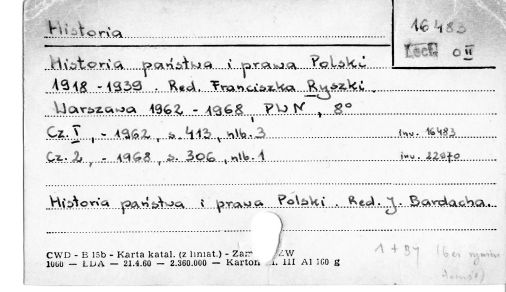 Historia
16483
0 II
Historia państwa i prawa Polski
1918-1939. Red. Franciszka Ryszki.
Warszawa 1962-1968, PWN, 8°
Cz. I, - 1962, s. 413, nlb. 3 inv. 16483
Cz. 2, - 1968, s. 306, nlb. 1 inv. 22070
Historia państwa i prawa Polski. Red. J. Bardacha.
CWD - B 15b - Karta katal. (z liniat.) - ZW
1060 — LDA — 21.4.60 — 2.360.000 — Karton III A1 160 g
1 + BY (bez